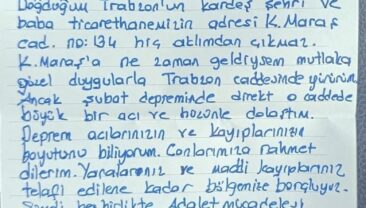 Doğduğum Trabzon'un kardeş şehri ve
baba ticarethanemizin adresi K.Maraş
cad. no: 134 hiç aklımdan çıkmaz.
K.Maraş'a ne zaman geldiysem mutlaka
güzel duygularla Trabzon caddesinde yürürüm
Ancak şubat depreminde direkt o caddede
büyük bir acı ve hüzünle dolaştım.
Deprem acılarınızın ve kayıplarınızın
boyutunu biliyorum. Canlarımıza rahmet
dilerim. Yaralarınız ve maddi kayıplarınız
telafi edilene kadar bölgenize borçluyuz.
birlikte Adalet mücadelesi